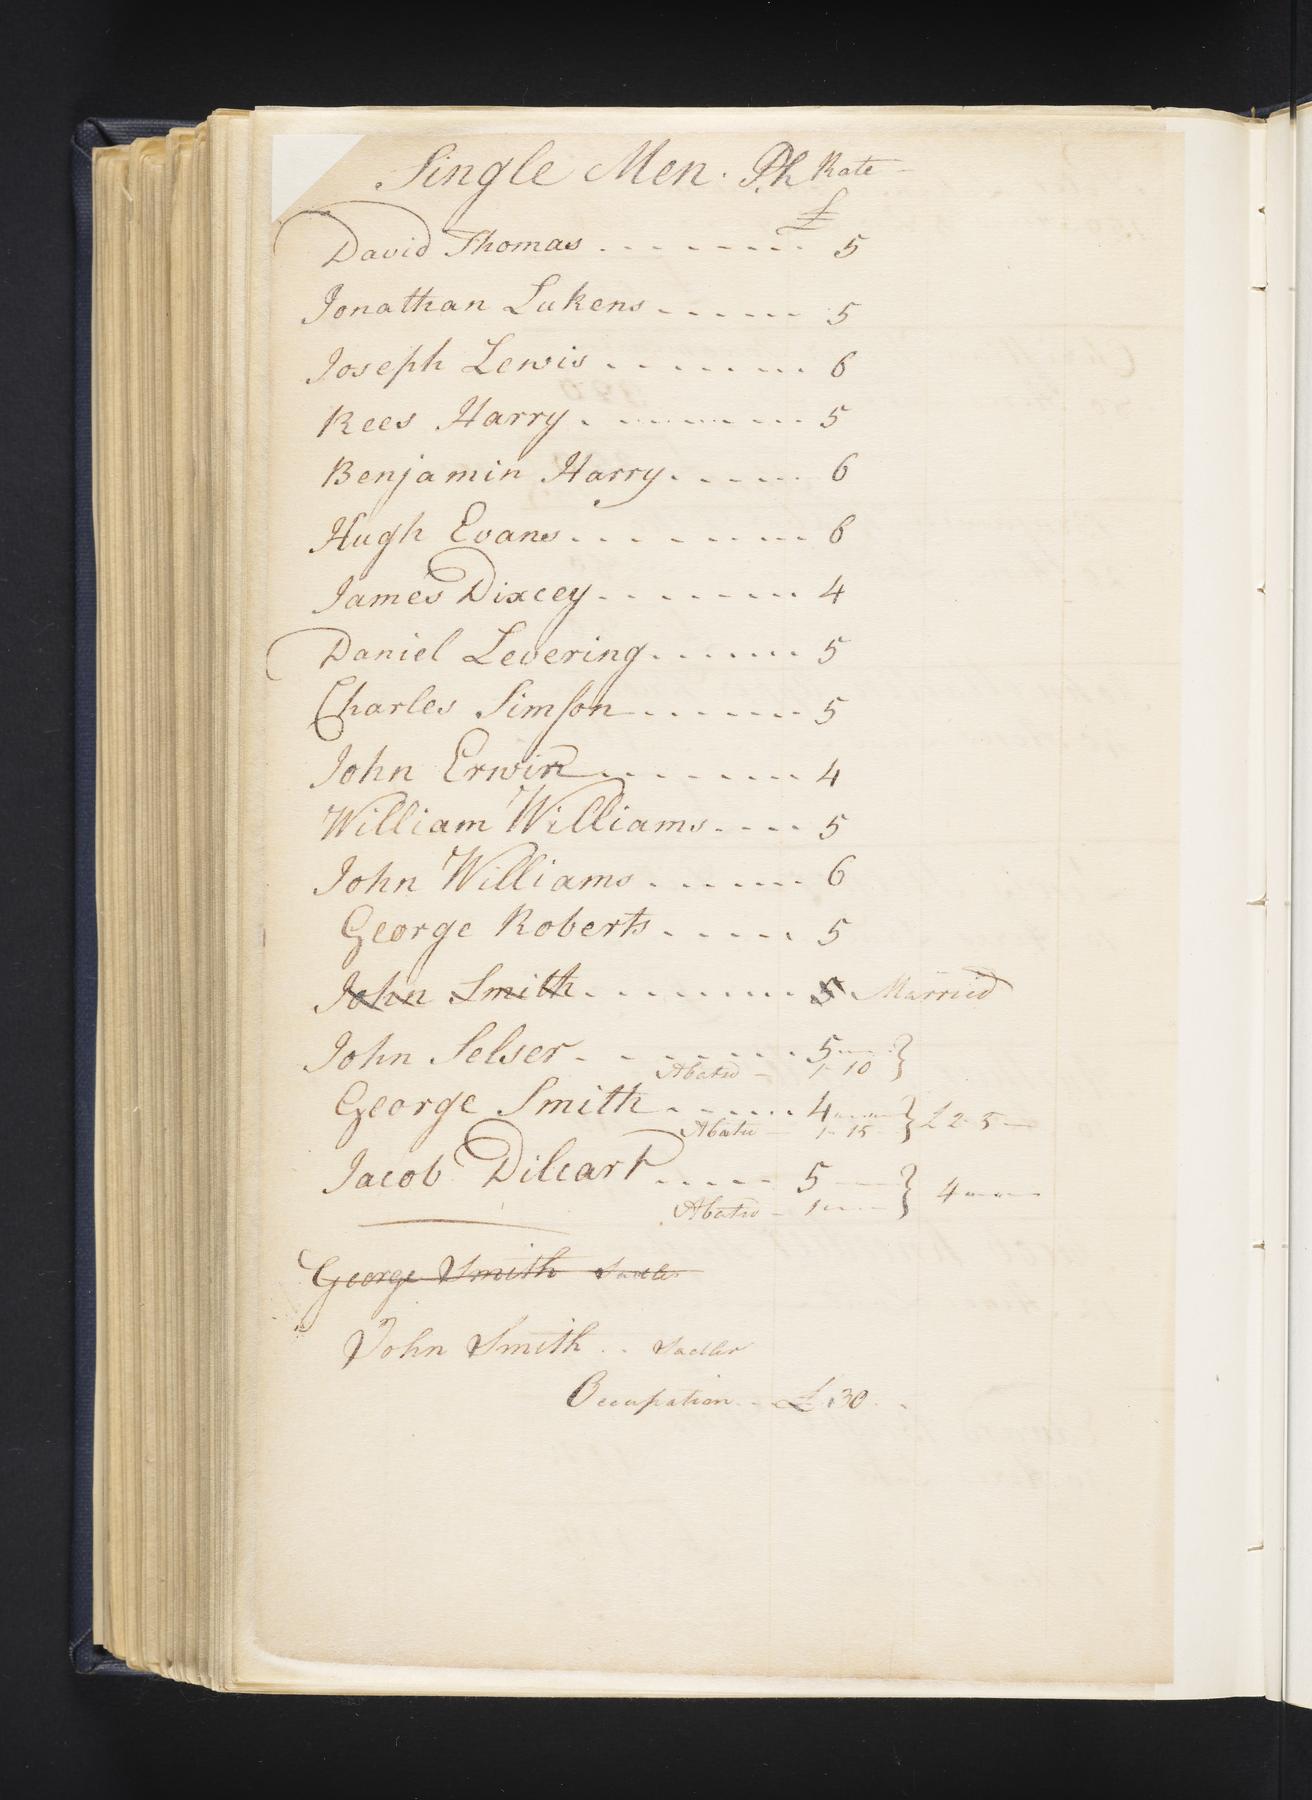 Single Men. Ph Rate
£
David Thomas . - - - - - - - 5
Jonathan Lukens - - - - - - 5
Joseph Lewis . - - - - - - . 6
Rees Harry . - - - - - - - 5
Benjamin Harry . - - - - - 6
Hugh Evans . - - - - - - - 6
James Dixcey - - - - - - - 4
Daniel Levering . - - - - - 5
Charles Simson - - - - - - 5
John Erwin - - - - - - - 4
William Williams - - - - 5
John Williams . - - - - - 6
George Roberts . - - - - 5
John Smith . - - - - - - - 5 Married
John Selser - - - - - - - 5 - -
Abated - 1 - 10
George Smith - - - - - 4 - - £ 2 - 5 -
Abatd - 1 - 15
Jacob Dilcart - - - - - 5 - 4 - -
Abated - 1 - -
George Smith Sadler
John Smith . . Sadler
Occupation - - £ 30 . .